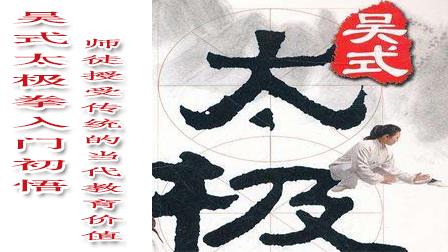 吴式太极拳入门初悟
师徒授受传统的当代教育价值
吴式
太极